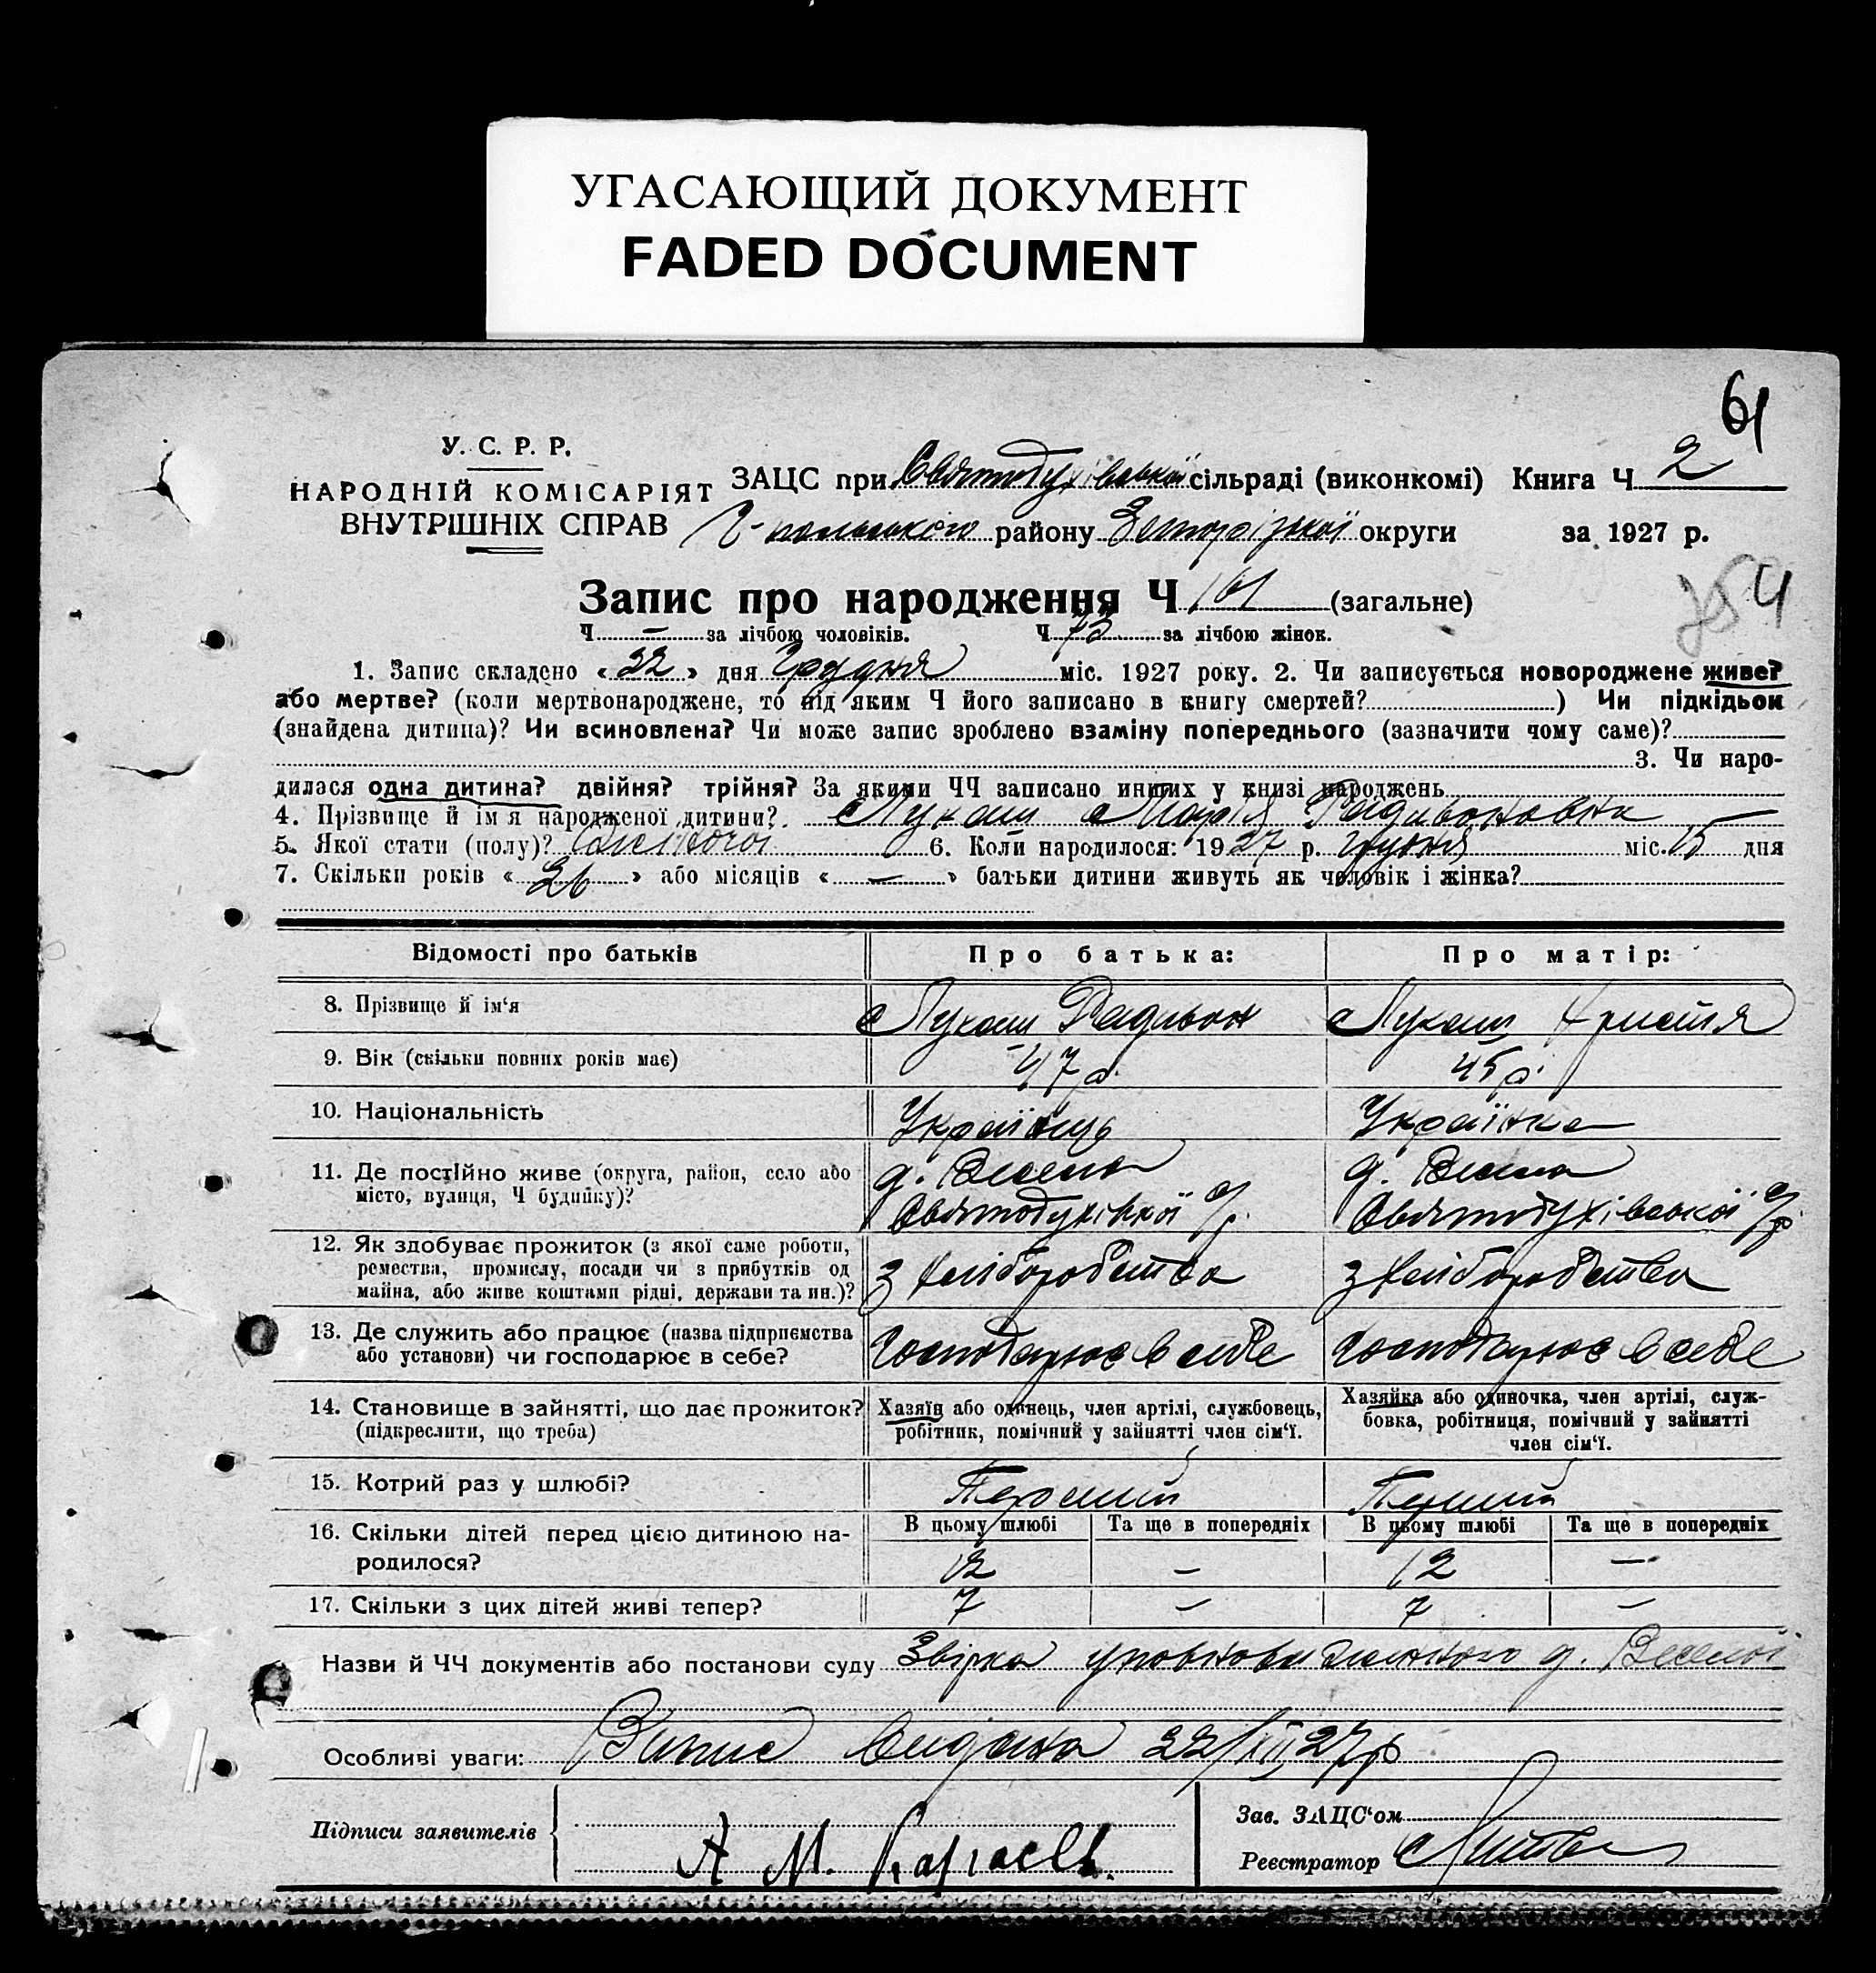 УГАСАЮЩИЙ ДОКУМЕНТ
FADED DOCUMENT
61
У. С. Р. Р.
НАРОДНІЙ КОМІСАРІЯТ
ВНУТРІШНІХ СПРАВ
ЗАЦС при Святодухівській сільраді (виконкомі) Книга Ч 2
району округи за 1927 р.
Запис про народження Ч 161 (загальне)
4
Ч — за лічбою чоловіків. Ч 73 за лічбою жінок.
1. Запис складено «22» дня Грудня міс. 1927 року. 2. Чи записується новороджене живе?
або мертве? (коли мертвонароджене, то під яким Ч його записано в книгу смертей? ) Чи підкідьок
(знайдена дитина)? Чи всиновлена? Чи може запис зроблено взаміну попереднього (зазначити чому саме)?
3. Чи наро-
дилася одна дитина? двійня? трійня? За якими ЧЧ записано инших у книзі народжень
4. Прізвище й ім'я народженої дитини? Лукаш Марія Радивоновна
5. Якої стати (полу)? Жіночої 6. Коли народилося: 1927 р. грудня міс. 15 дня
7. Скільки років «26» або місяців «—» батьки дитини живуть як чоловік і жінка?
Відомості про батьків Про батька: Про матір:
8. Прізвище й ім'я Лукаш Радивон Лукаш Христя
9. Вік (скільки повних років має) 47 р. 45 р.
10. Національність Українць Українка
11. Де постійно живе (округа, район, село або д. Весела д. Весела
місто, вулиця, Ч будинку)? Святодухівської с/р. Святодухівської с/р.
12. Як здобуває прожиток (з якої саме роботи,
ремества, промислу, посади чи з прибутків од з хліборобства з хліборобства
майна, або живе коштами рідні, держави та ин.)?
13. Де служить або працює (назва підприємства
або установи) чи господарює в себе? Господарює в себе Господарює в себе
14. Становище в зайнятті, що дає прожиток? Хазяїн або одинець, член артілі, службовець, Хазяйка або одиночка, член артілі, служ-
(підкреслити, що треба) робітник, помічний у зайнятті член сім'ї. бовка, робітниця, помічний у зайнятті
член сім'ї.
15. Котрий раз у шлюбі? Перший Перший
16. Скільки дітей перед цією дитиною на- В цьому шлюбі Та ще в попередніх В цьому шлюбі Та ще в попередніх
родилося? 12 — 12 —
17. Скільки з цих дітей живі тепер? 7 — 7 —
Назви й ЧЧ документів або постанови суду Звірка уповноваженого д. Веселої
Особливі уваги: Випис видана 22/XII 27 р
Підписи заявителів А М.
Зав. ЗАЦС'ом
Реєстратор